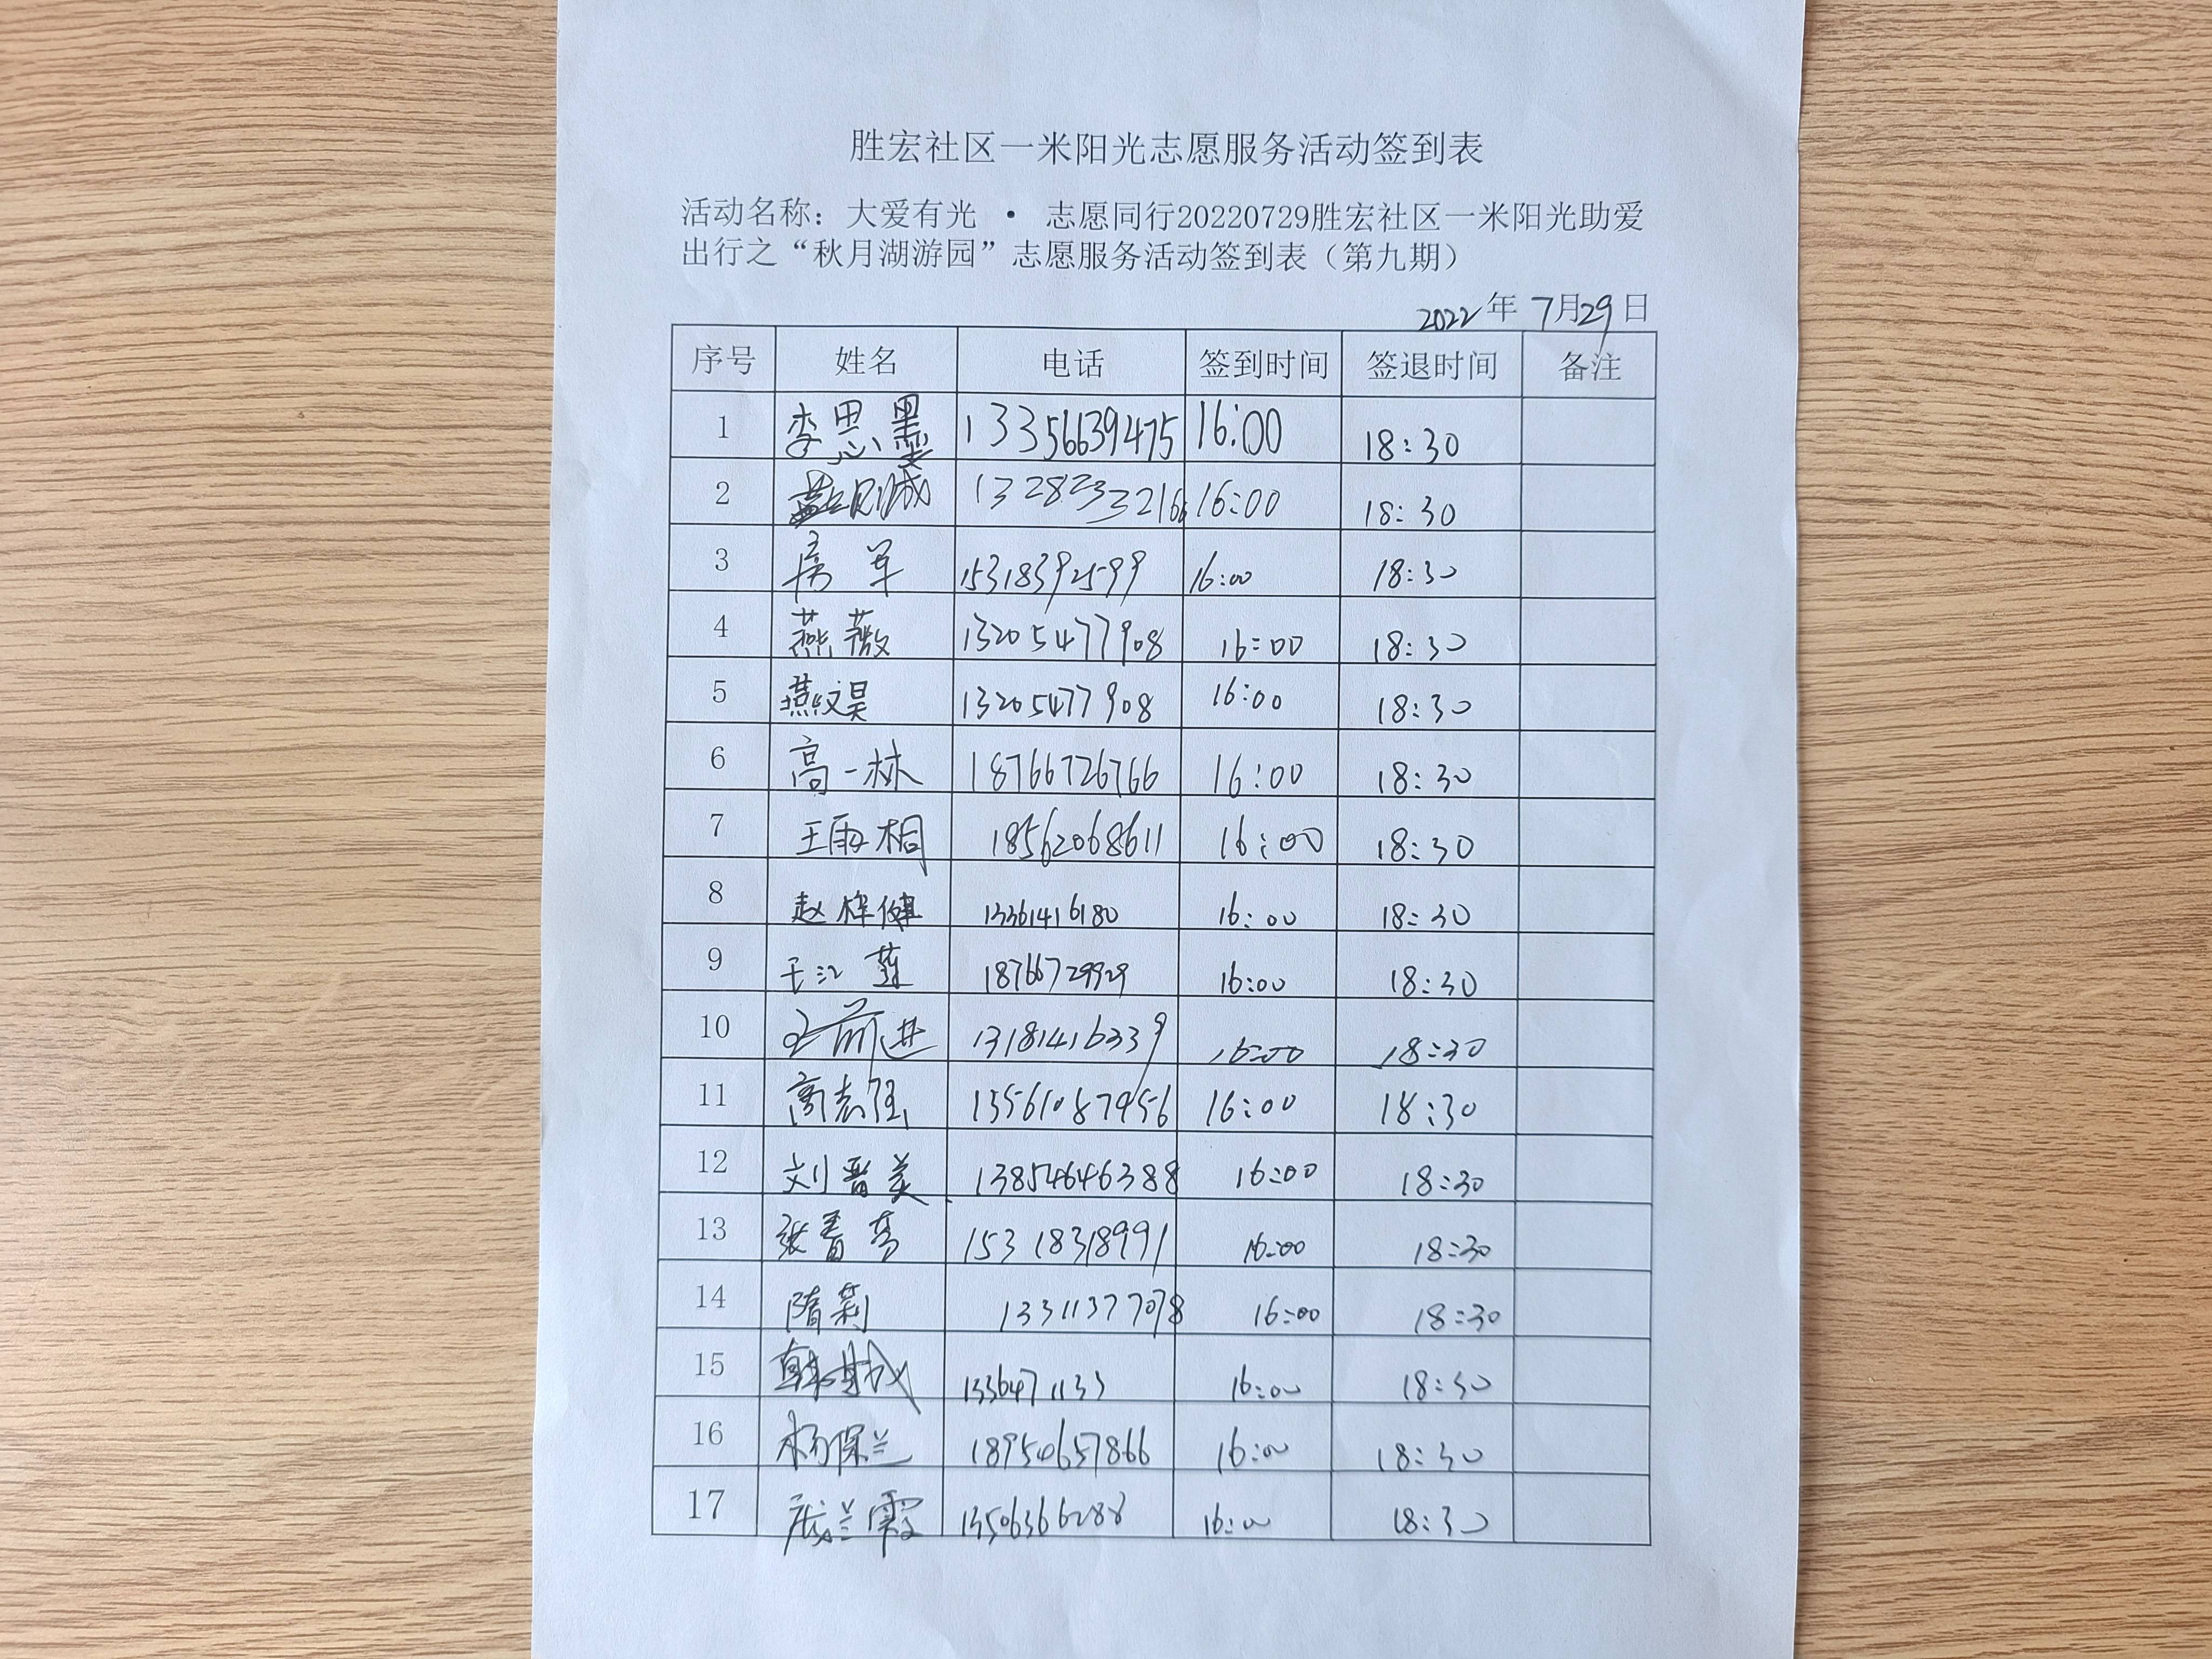 胜宏社区一米阳光志愿服务活动签到表
活动名称：大爱有光 · 志愿同行20220729胜宏社区一米阳光助爱
出行之“秋月湖游园”志愿服务活动签到表（第九期）
2022年7月29日
序号 姓名 电话 签到时间 签退时间 备注
1 李思墨 13356639475 16:00 18:30
2 13282332166 16:00 18:30
3 房军 15318392599 16:00 18:30
4 燕薇 13205477908 16:00 18:30
5 燕文昊 13205477908 16:00 18:30
6 高一林 18766726766 16:00 18:30
7 王雨桐 18562068611 16:00 18:30
8 赵梓健 13361416180 16:00 18:30
9 王江莲 18766729929 16:00 18:30
10 王前进 13181416339 16:00 18:30
11 高志强 13561087956 16:00 18:30
12 刘晋美 13854646388 16:00 18:30
13 张春芳 15318318991 16:00 18:30
14 隋莉 13311377078 16:00 18:30
15 16:00 18:30
16 杨保兰 18954657866 16:00 18:30
17 庞兰霞 13506366288 16:00 18:30